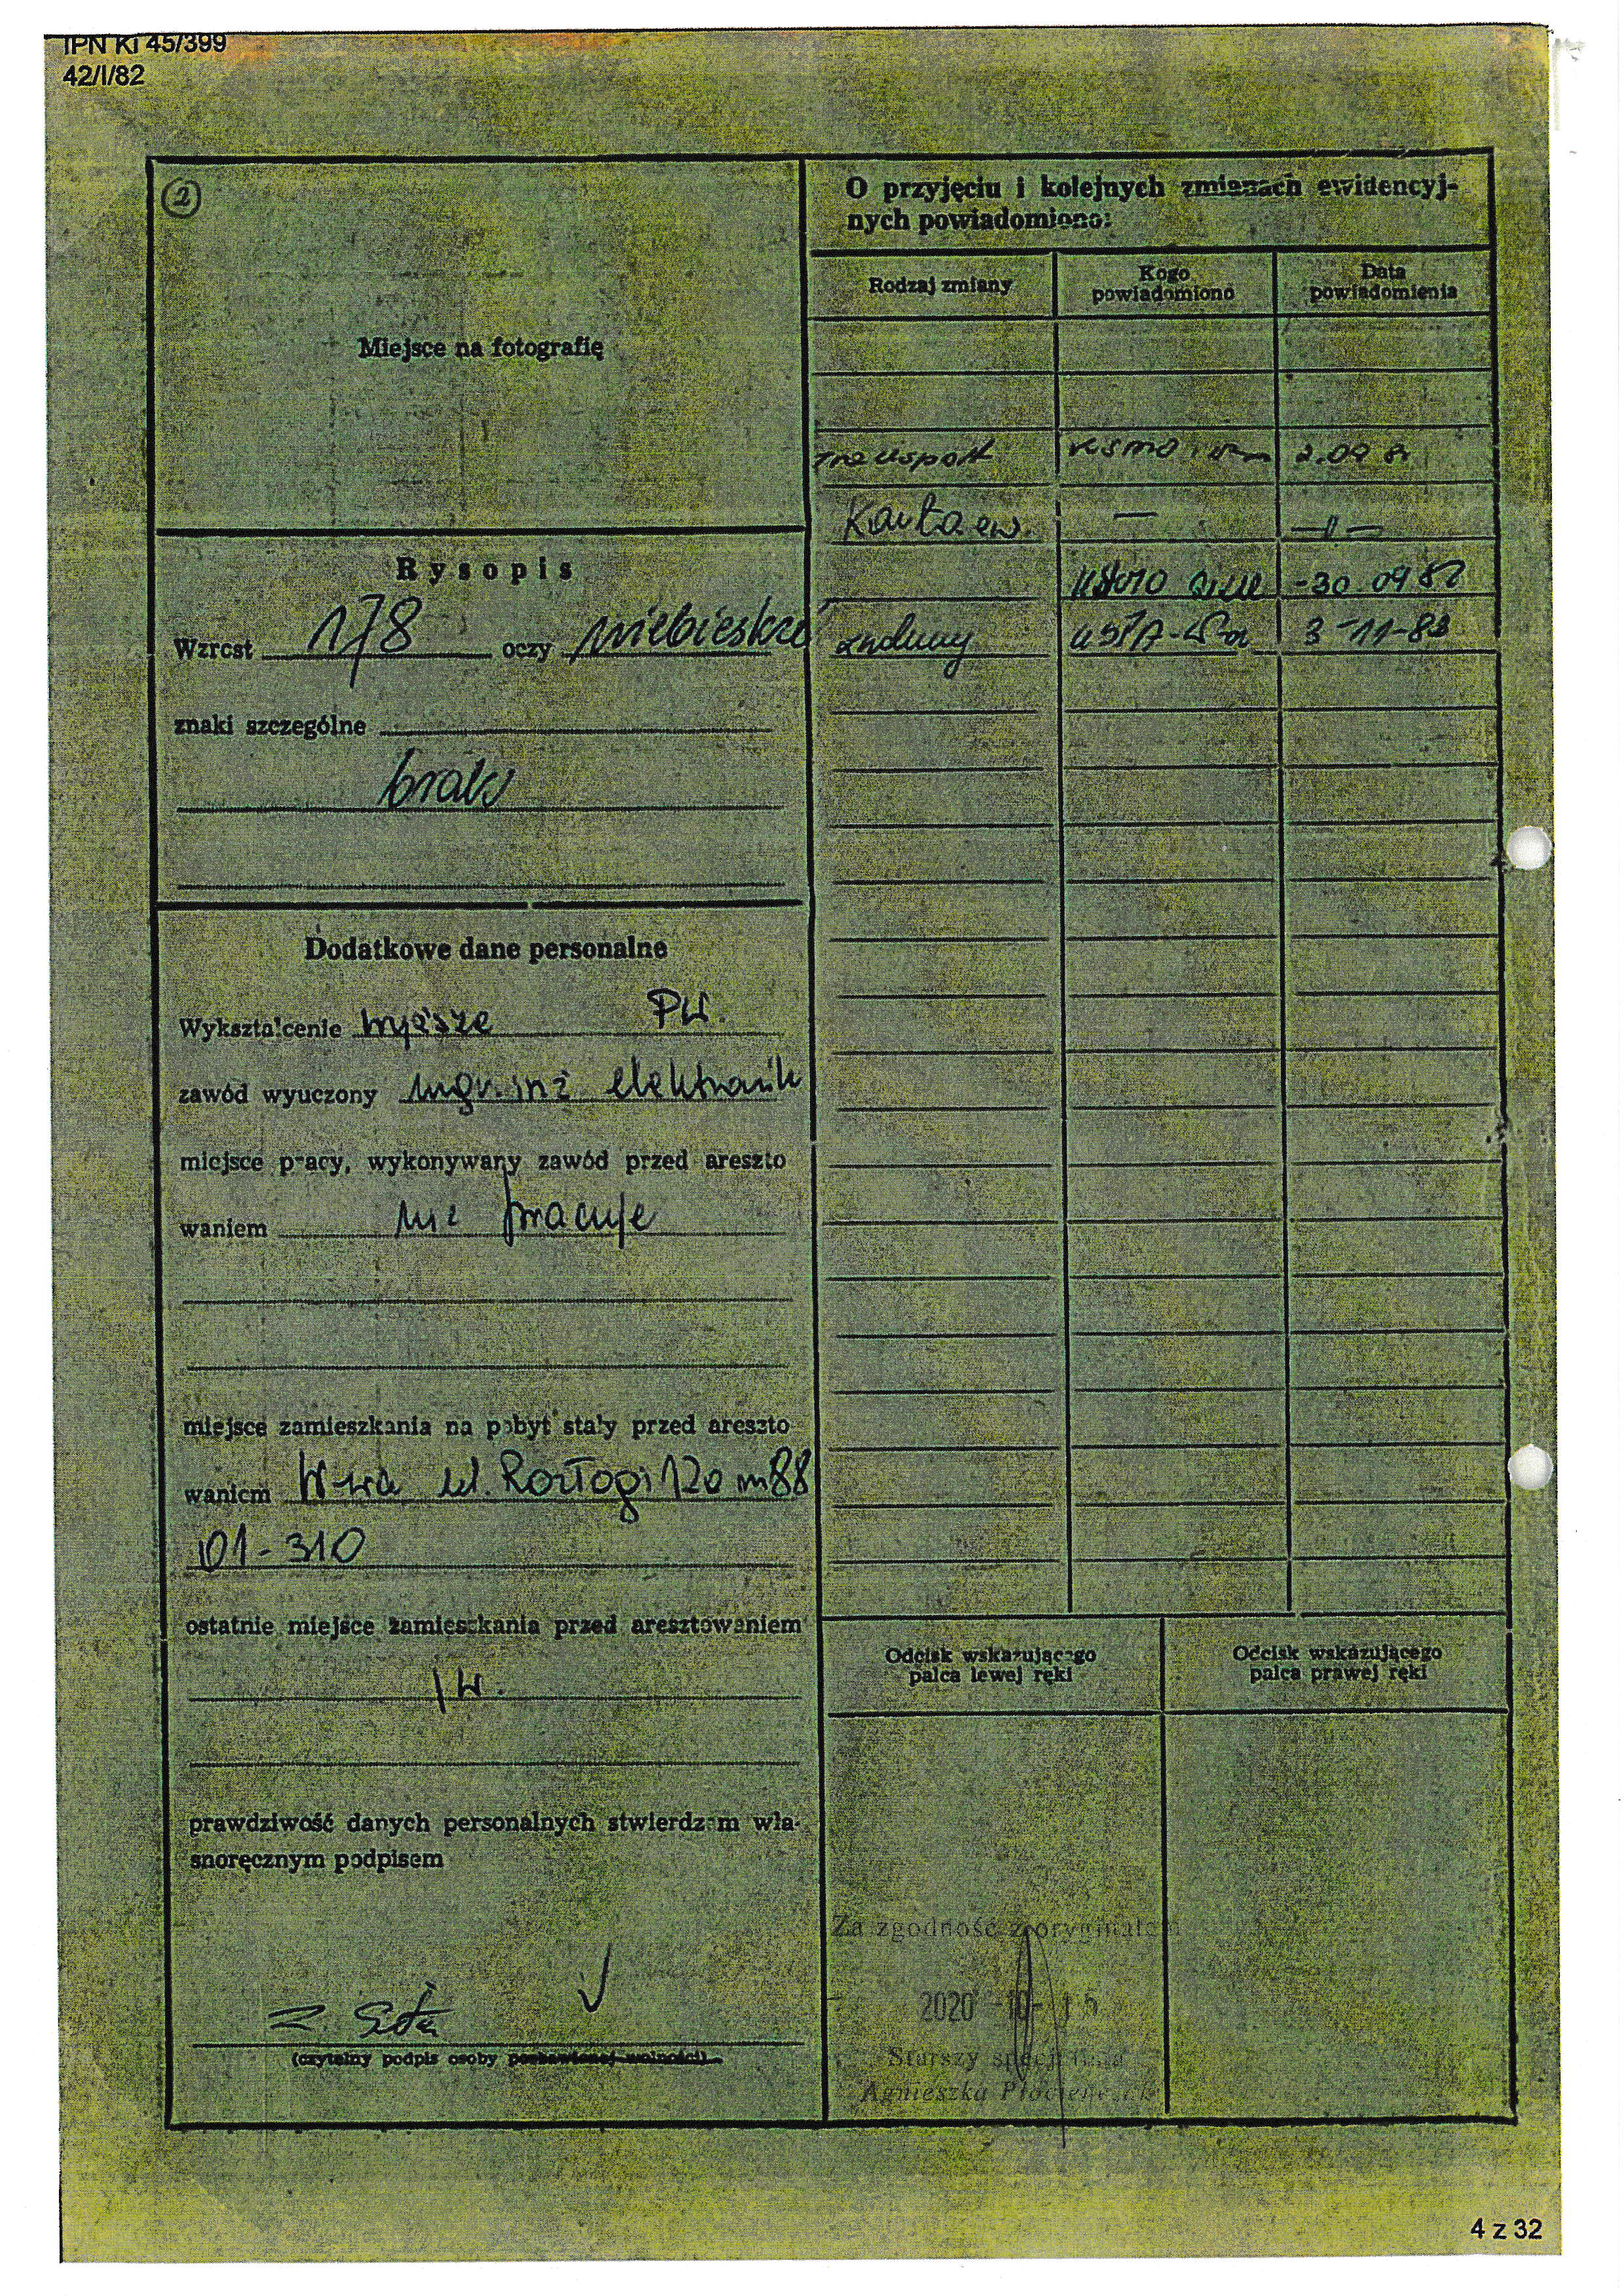 IPN Ki 45/399
42/I/82
2
Miejsce na fotografię
Rysopis
Wzrost 178 oczy niebieskie
znaki szczególne
brak
Dodatkowe dane personalne
Wykształcenie wyższe PW.
zawód wyuczony mgr. inż elektronik
miejsce pracy, wykonywany zawód przed areszto
waniem nie pracuje
miejsce zamieszkania na pobyt stały przed areszto
waniem W-wa ul. Rozłogi 120 m 88
01-310
ostatnie miejsce zamieszkania przed aresztowaniem
jw.
prawdziwość danych personalnych stwierdzam wła-
snoręcznym podpisem
Z.
(czytelny podpis osoby pozbawionej wolności)
O przyjęciu i kolejnych zmianach ewidencyj-
nych powiadomiono:
Rodzaj zmiany
Kogo
powiadomiono
Data
powiadomienia
transport 2.09
Karta ew. — —"—
30.09 82
3-11-83
Odcisk wskazującego
palca lewej ręki
Odcisk wskazującego
palca prawej ręki
Za zgodność z oryginałem
2020 -10- 15
Starszy specjalista
Agnieszka
4 z 32